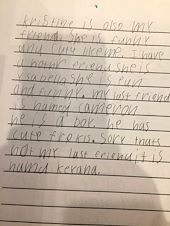 kristine is also my
friend. She is funny
and cute like me. I have
a nothr friend She is
ysabella She is fun
and funny. my last friend
is named cameron
he is a boy. he has
cute frekis. Sory thats
not my last friend it is
namd kerana.